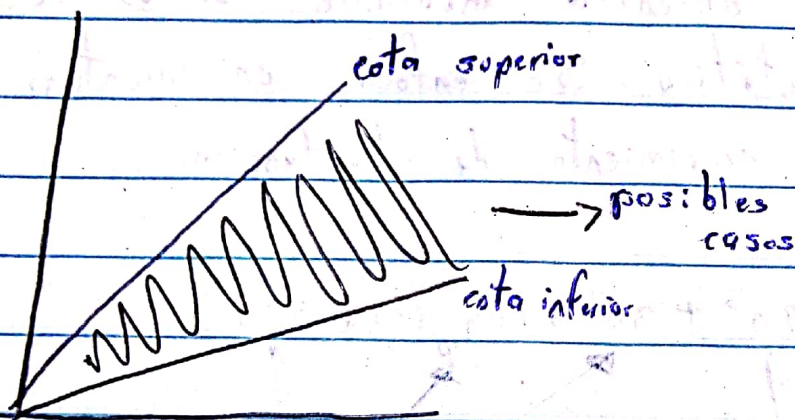 cota superior
posibles
casos
cota inferior